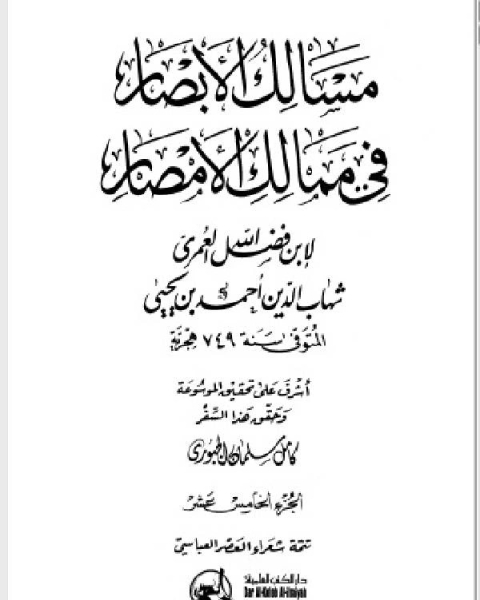 مَسَالِكُ الأَبْصَارِ
فِي مَمَالِكِ الأَمْصَارِ
لابن فضل الله العمري
شهاب الدين أحمد بن يحيى
المتوفى سنة ٧٤٩ هجرية
أشرف على تحقيق الموسوعة
وحقق هذا السفر
كامل سلمان الجبوري
الجزء الخامس عشر
تتمة شعراء العصر العباسي
دار الكتب العلمية
Dar Al-Kotob Al-Ilmiyah